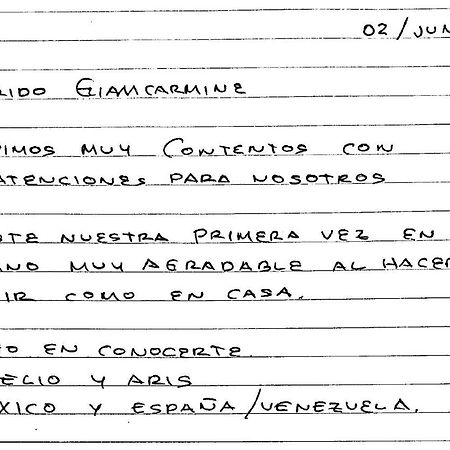 02/JUN
RIDO GIANCARMINE
VIMOS MUY CONTENTOS CON
ATENCIONES PARA NOSOTROS
NUESTRA PRIMERA VEZ EN
MUY AGRADABLE AL HACER
IR COMO EN CASA.
O EN CONOCERTE
ELIO Y ARIS
XICO Y ESPAÑA/VENEZUELA.